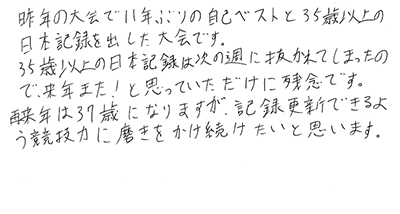 昨年の大会で11年ぶりの自己ベストと35歳以上の
日本記録を出した大会です。
35歳以上の日本記録は次の週に抜かれてしまったの
で、来年また！と思っていただけに残念です。
再来年は37歳になりますが、記録更新できるよ
う競技力に磨きをかけ続けたいと思います。